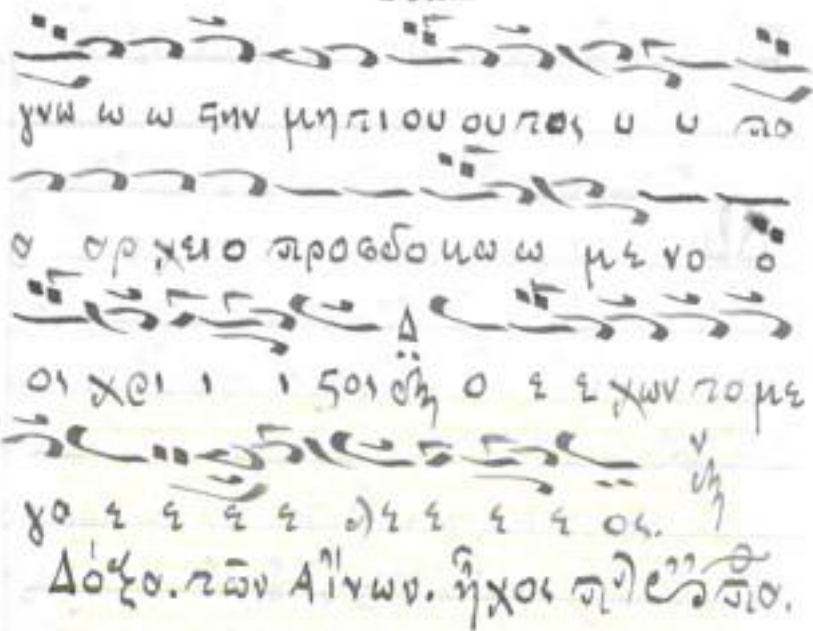 γνω ω ω στην μη τι ου ου τος υ υ πα
α αρ χει ο προσδο κω ω με νο ο
οι χρι ι ι στος ο ε ε χων το με
γα ε ε ε ε λε ε ε ε ος.
Δόξα. τῶν Αἴνων. ἦχος πλ πα.